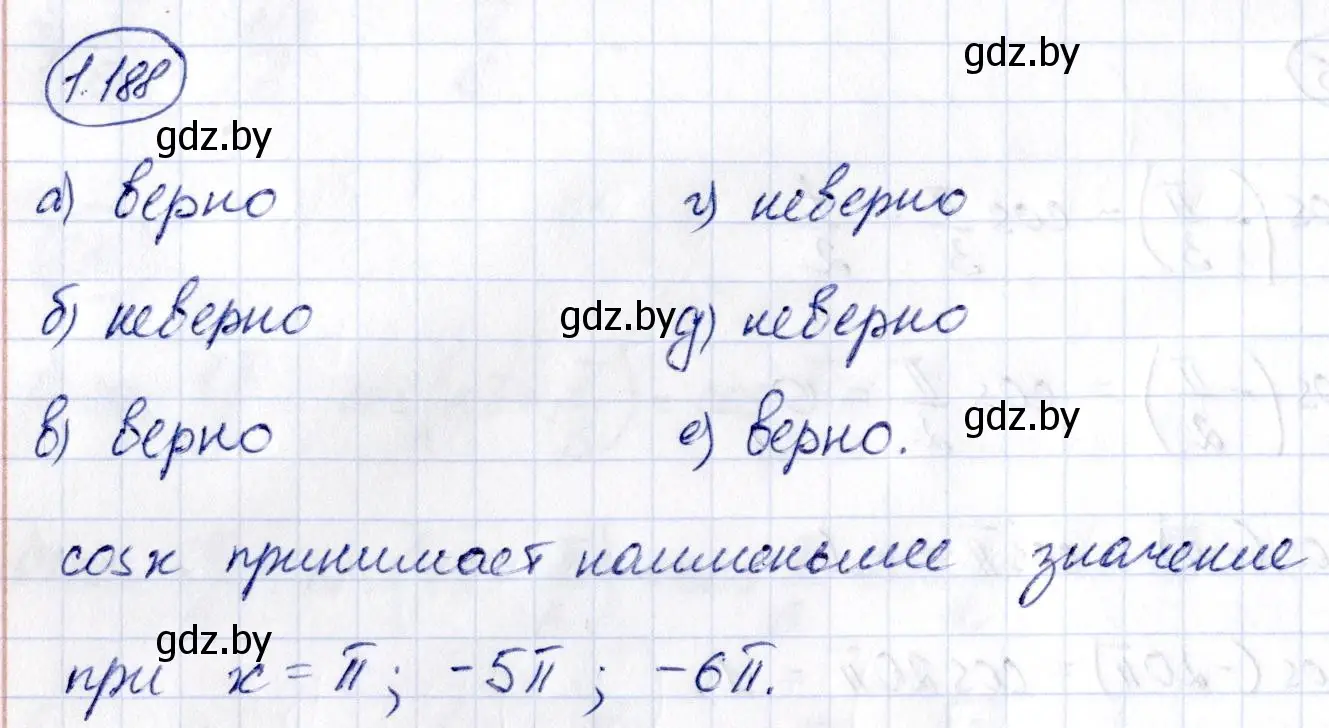 gdz.by
1.188
gdz.by
а) верно
г) неверно
б) неверно
gdz.by
д) неверно
в) верно
е) верно.
gdz.by
cos x принимает наименьшее значение
gdz.by
при x = π; -5π; -6π.